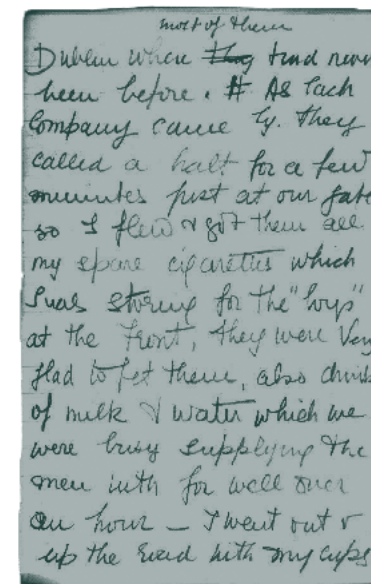 most of them
Dublin where they had never
been before. # As each
Company came by. they
called a halt for a few
minutes just at our gate
so I flew & got them all
my spare cigarettes which
I was storing for the "boys"
at the Front, they were Very
glad to get them, also drinks
of milk & water which we
were busy supplying the
men with for well over
an hour – I went out &
up the road with my cups